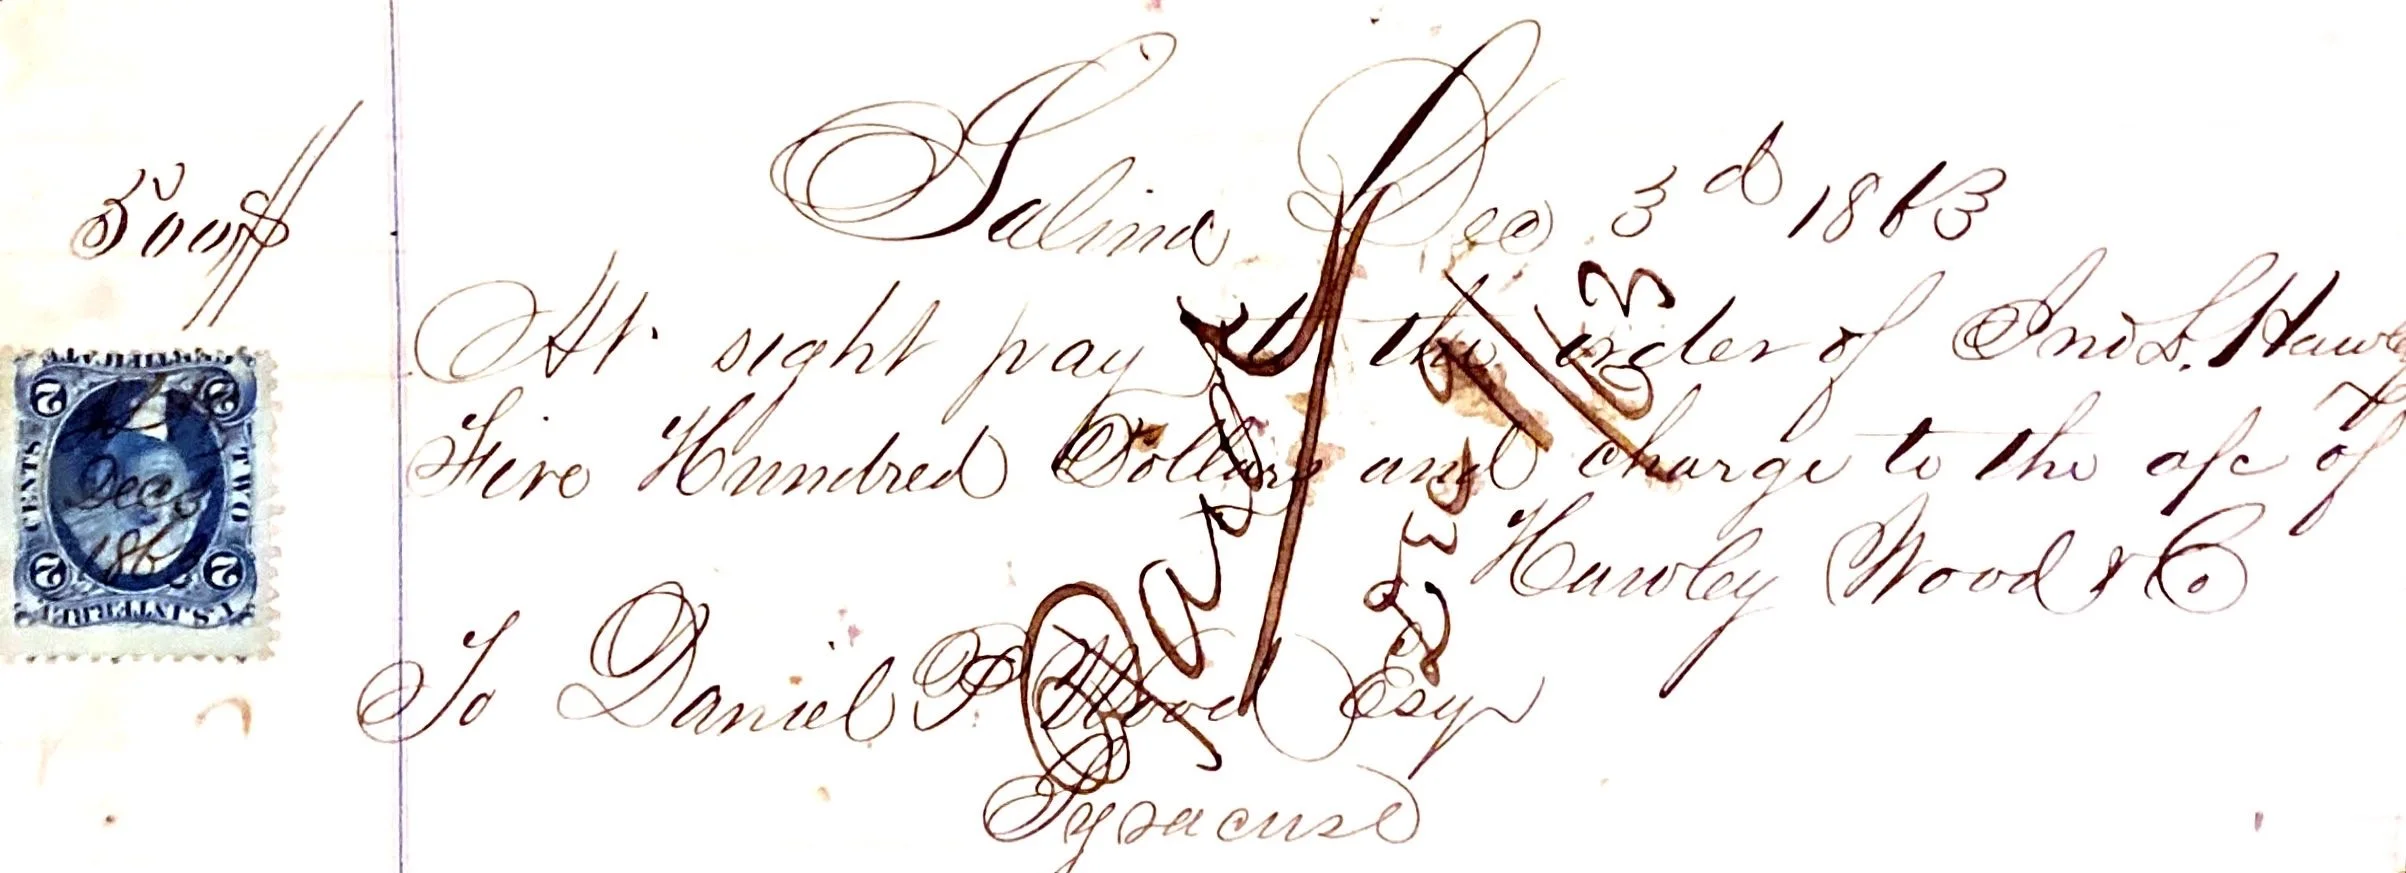 Salina Dec 3d 1863
500
At sight pay to the order of Jno L. Hawley
Five Hundred Dollars and charge to the a/c of
Hawley Wood & Co
To Daniel P Wood Esqr
Syracuse
Paid
Dec 3
63
U.S. INTER. REV.
2 2
CENTS TWO
2 2
Dec 3
1863